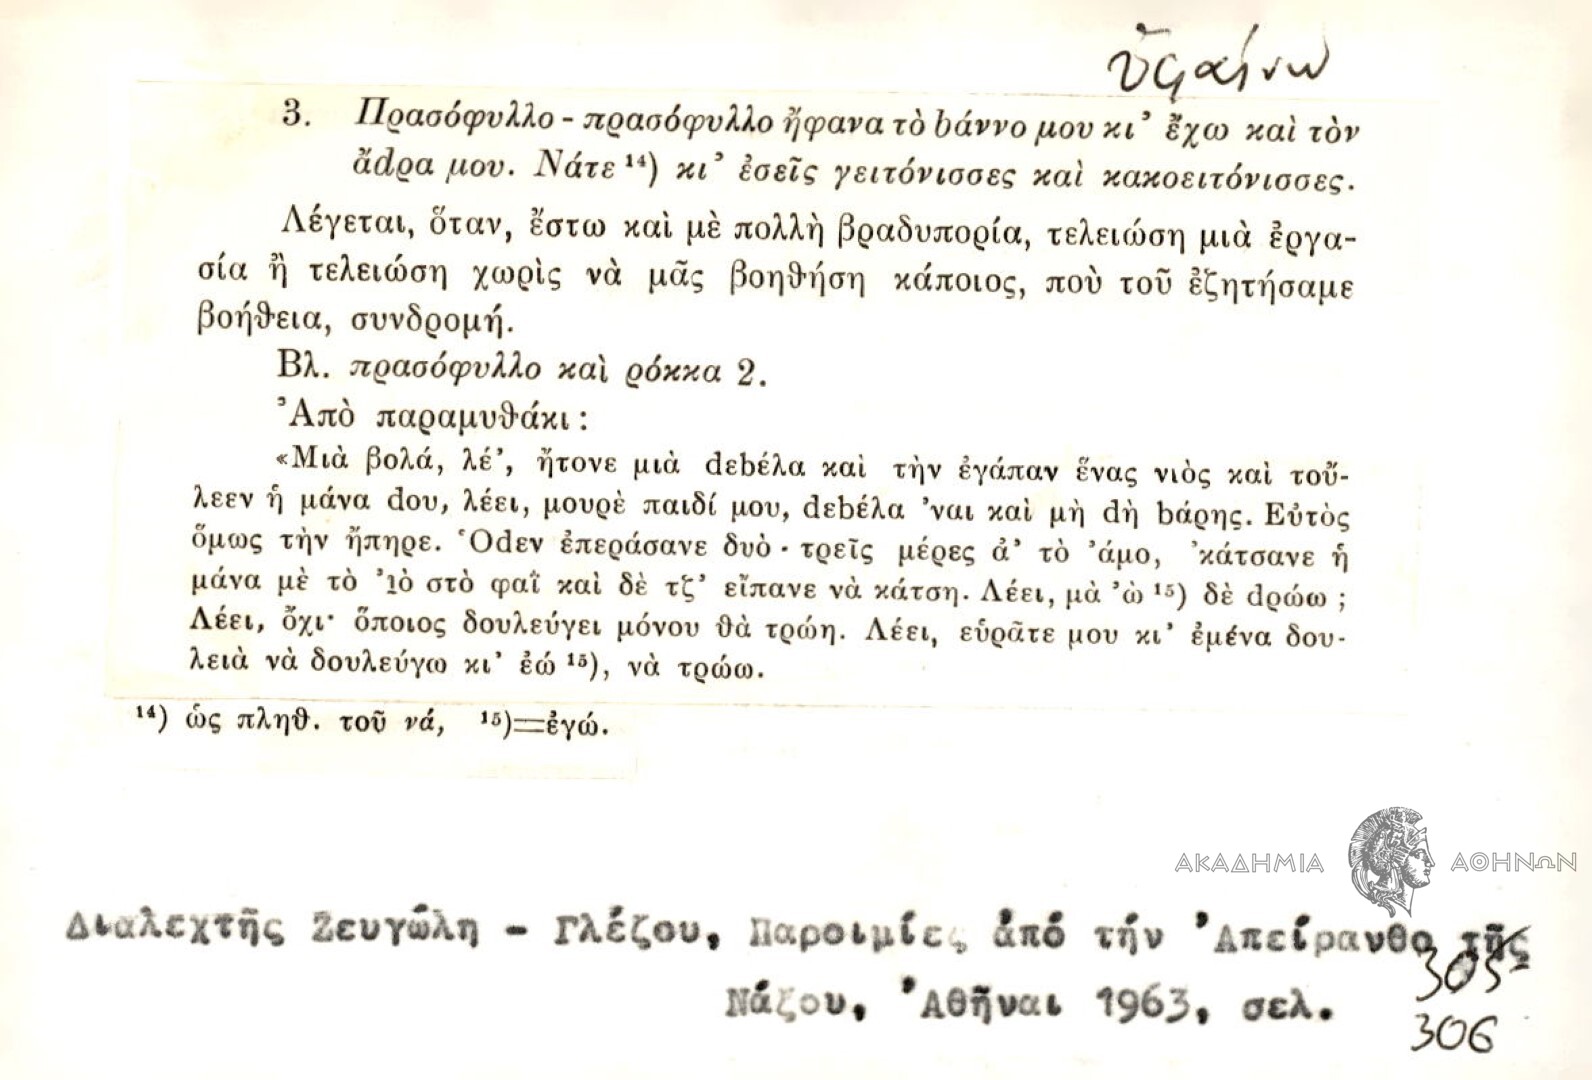 ὑφαίνω
3. Πρασόφυλλο - πρασόφυλλο ἤφανα τὸ bάννο μου κι’ ἔχω καὶ τὸν
ἄdρα μου. Νάτε ¹⁴) κι’ ἐσεῖς γειτόνισσες καὶ κακοειτόνισσες.
Λέγεται, ὅταν, ἔστω καὶ μὲ πολλὴ βραδυπορία, τελειώση μιὰ ἐργα-
σία ἢ τελειώση χωρὶς νὰ μᾶς βοηθήση κάποιος, ποὺ τοῦ ἐζητήσαμε
βοήθεια, συνδρομή.
Βλ. πρασόφυλλο καὶ ρόκκα 2.
Ἀπὸ παραμυθάκι :
«Μιὰ βολά, λέ’, ἤτονε μιὰ dεbέλα καὶ τὴν ἐγάπαν ἕνας νιὸς καὶ τοὔ-
λεεν ἡ μάνα dου, λέει, μουρὲ παιδί μου, dεbέλα ’ναι καὶ μὴ dὴ bάρης. Εὐτὸς
ὅμως τὴν ἤπηρε. Ὁdεν ἐπεράσανε δυὸ - τρεῖς μέρες ἀ’ τὸ ’άμο, ’κάτσανε ἡ
μάνα μὲ τὸ ’ιὸ στὸ φαῒ καὶ δὲ τζ’ εἴπανε νὰ κάτση. Λέει, μὰ ’ὼ ¹⁵) δὲ dρώω ;
Λέει, ὄχι· ὅποιος δουλεύγει μόνου θὰ τρώη. Λέει, εὑρᾶτε μου κι’ ἐμένα δου-
λειὰ νὰ δουλεύγω κι’ ἐώ ¹⁵), νὰ τρώω.
¹⁴) ὡς πληθ. τοῦ νά, ¹⁵)=ἐγώ.
ΑΚΑΔΗΜΙΑ ΑΘΗΝΩΝ
Διαλεχτῆς Ζευγώλη - Γλέζου, Παροιμίες ἀπό τήν Ἀπείρανθο τῆς
Νάξου, Ἀθῆναι 1963, σελ. 305-
306